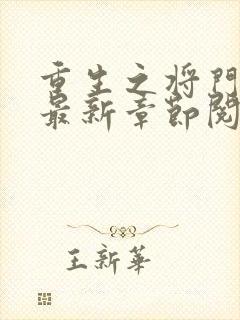 重生之将门
最新章节阅
王新華